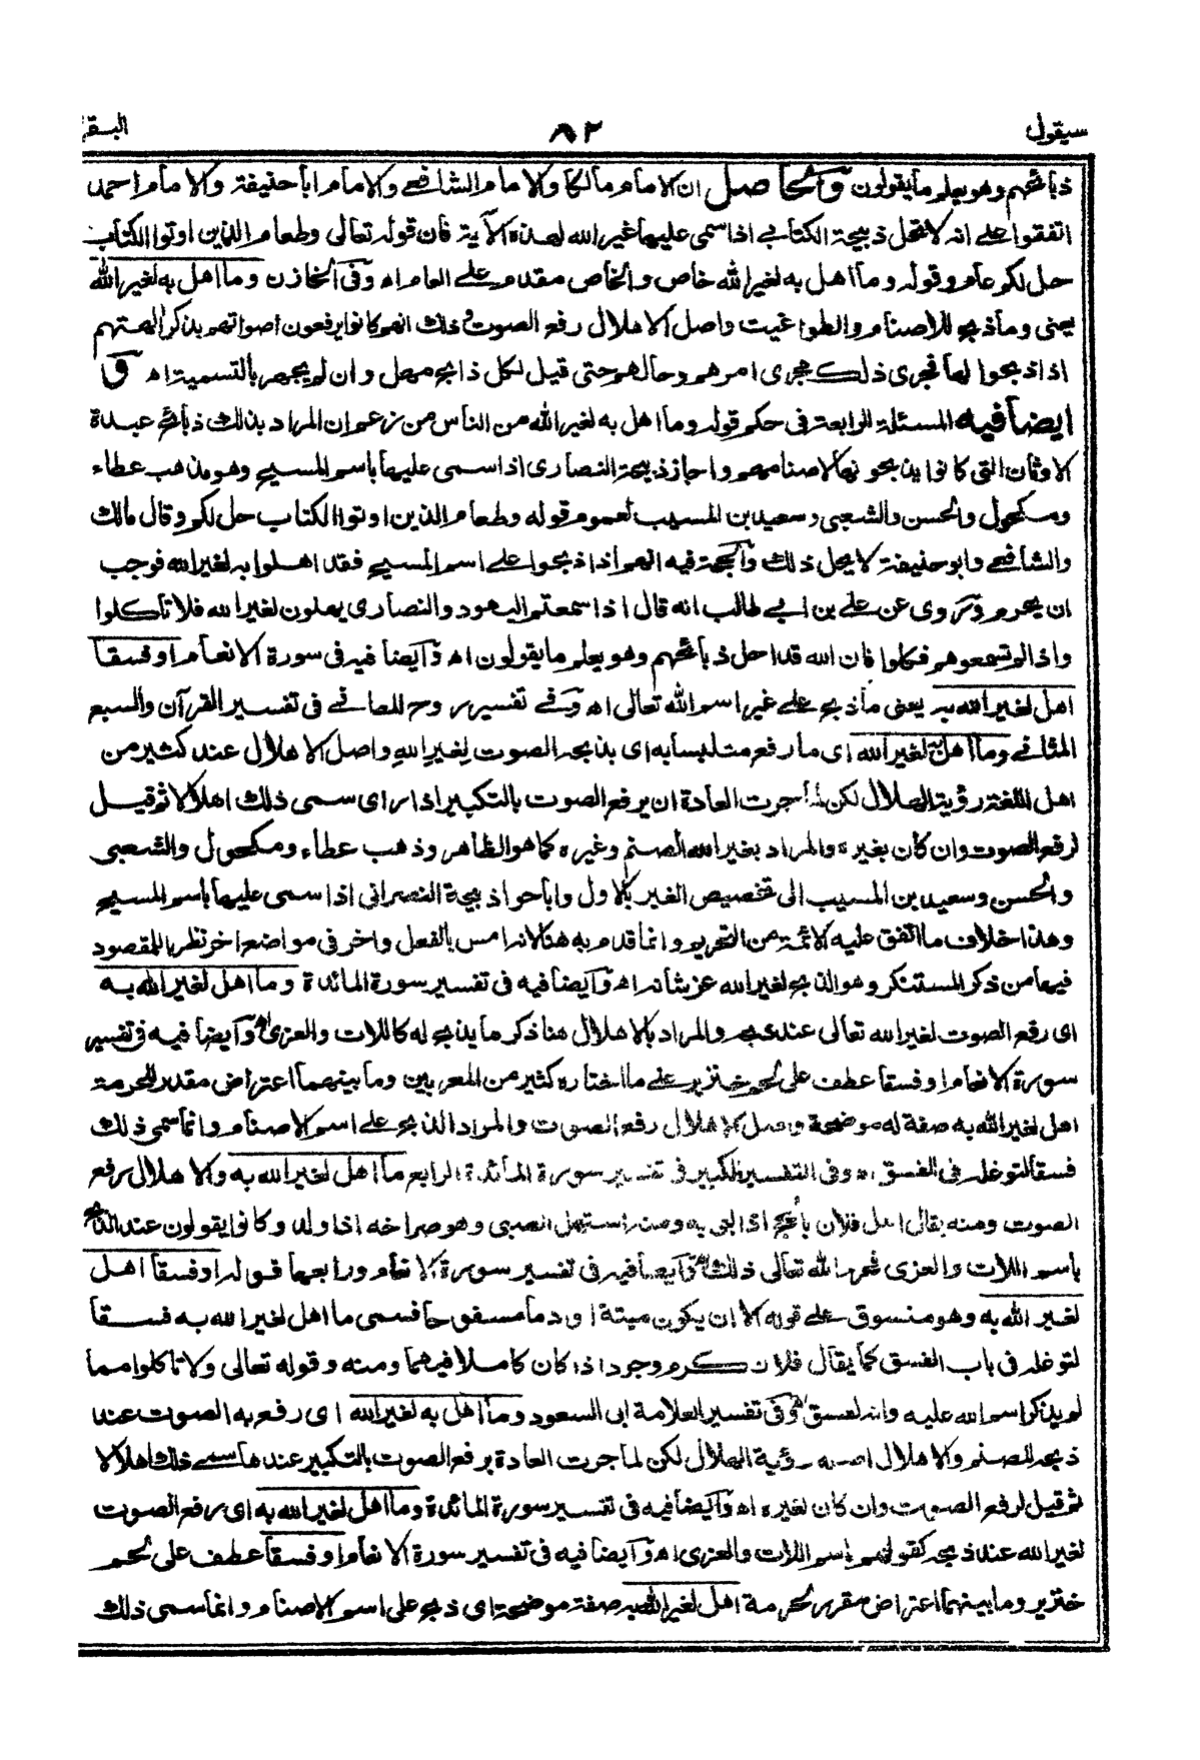 سيقول ٨٢ البقر
ذبائحهم وهو يعلم ما يقولون والحاصل ان الامام مالكا والامام الشافعي والامام ابا حنيفة والامام احمد
اتفقوا على انه لا تحل ذبيحة الكتابي اذا سمى عليها غير الله لهذه الآية فان قوله تعالى وطعام الذين اوتوا الكتاب
حل لكم عام وقوله وما اهل به لغير الله خاص والخاص مقدم على العام اه وفى الخازن وما اهل به لغير الله
يعنى وما ذبح للاصنام والطواغيت واصل الاهلال رفع الصوت وذلك انهم كانوا يرفعون اصواتهم بذكر الهتهم
اذا ذبحوا لها فجرى ذلك مجرى امرهم وحالهم حتى قيل لكل ذابح مهل وان لم يجهر بالتسمية اه و
ايضا فيه المسئلة الرابعة فى حكم قوله وما اهل به لغير الله من الناس من زعم ان المراد بذلك ذبائح عبدة
الاوثان التى كانوا يذبحونها لاصنامهم واجاز ذبيحة النصارى اذا سمى عليها باسم المسيح وهو مذهب عطاء
ومكحول والحسن والشعبى وسعيد بن المسيب لعموم قوله وطعام الذين اوتوا الكتاب حل لكم وقال مالك
والشافعي وابو حنيفة لا يحل ذلك والحجة فيه انهم اذا ذبحوا على اسم المسيح فقد اهلوا به لغير الله فوجب
ان يحرم وروى عن على بن ابي طالب انه قال اذا سمعتم اليهود والنصارى يهلون لغير الله فلا تاكلوا
واذا لم تسمعوهم فكلوا فان الله قد احل ذبائحهم وهو يعلم ما يقولون اه وايضا فيه فى سورة الانعام او فسقا
اهل لغير الله به يعنى ما ذبح على غير اسم الله تعالى اه وفي تفسير روح المعاني فى تفسير القرآن والسبع
المثاني وما اهل به لغير الله اى ما رفع متلبسا به اى بذبحه الصوت لغير الله واصل الاهلال عند كثير من
اهل اللغة رؤية الهلال لكن لما جرت العادة ان يرفع الصوت بالتكبير اذا راى سمى ذلك اهلالا ثم قيل
لرفع الصوت وان كان بغيره والمراد بغير الله الصنم وغيره كما هو الظاهر وذهب عطاء ومكحول والشعبى
والحسن وسعيد بن المسيب الى تخصيص الغير بالاول واباحوا ذبيحة النصرانى اذا سمى عليها باسم المسيح
وهذا خلاف ما اتفق عليه الائمة من التحريم وانما قدم به هنا لانه امس بالفعل واخر فى مواضع اخر نظرا للمقصود
فيها من ذكر المستنكر وهو الذبح لغير الله عز شانه اه وايضا فيه فى تفسير سورة المائدة وما اهل لغير الله به
اى رفع الصوت لغير الله تعالى عند ذبحه والمراد بالاهلال هنا ذكر ما يذبح له كاللات والعزى اه وايضا فيه فى تفسير
سورة الانعام او فسقا عطف على لحم خنزير على ما اختاره كثير من المعربين وما بينهما اعتراض مقدر للحرمة
اهل لغير الله به صفة له موضحة واصل الاهلال رفع الصوت والمراد الذبح على اسم الاصنام وانما سمى ذلك
فسقا لتوغله فى الفسق اه وفى التفسير الكبير فى تفسير سورة المائدة الرابع ما اهل لغير الله به والاهلال رفع
الصوت ومنه يقال اهل فلان بالحج اذا لبى به ومنه استهل الصبى وهو صراخه اذا ولد وكانوا يقولون عند الذبح
باسم اللات والعزى فحرم الله تعالى ذلك اه وايضا فيه فى تفسير سورة الانعام ورابعها قوله او فسقا اهل
لغير الله به وهو منسوق على قوله الا ان يكون ميتة او دما مسفوحا فسمى ما اهل لغير الله به فسقا
لتوغله فى باب الفسق كما يقال فلان كرم وجود اذا كان كاملا فيهما ومنه وقوله تعالى ولا تاكلوا مما
لم يذكر اسم الله عليه وانه لفسق اه وفى تفسير العلامة ابى السعود وما اهل به لغير الله اى رفع به الصوت عند
ذبحه للصنم والاهلال اصله رؤية الهلال لكن لما جرت العادة برفع الصوت بالتكبير عندها سمى ذلك اهلالا
ثم قيل لرفع الصوت وان كان لغيره اه وايضا فيه فى تفسير سورة المائدة وما اهل لغير الله به اى رفع الصوت
لغير الله عند ذبحه كقولهم باسم اللات والعزى اه وايضا فيه فى تفسير سورة الانعام او فسقا عطف على لحم
خنزير وما بينهما اعتراض مقرر لحرمة اهل لغير الله به صفة موضحة اى ذبح على اسم الاصنام وانما سمى ذلك